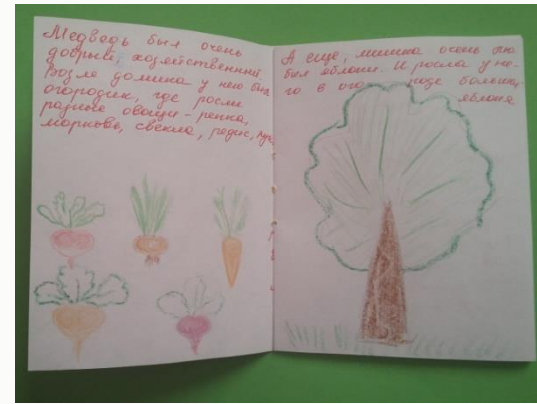 Медведь был очень
добрый, хозяйственный.
Возле домика у него был
огородик, где росли
разные овощи - репка,
морковь, свекла, редис, лук.
А еще, мишка очень лю
бил яблоки. И росла у не-
го в ого роде большая
яблоня